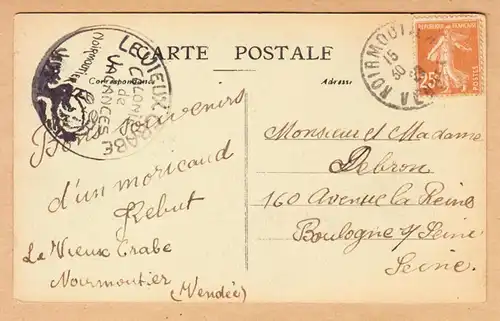 CARTE POSTALE
Correspondance
Adresse
LE VIEUX CRABE
COLONIE
de
VACANCES
NOIRMOUTIER
NOIRMOUTI
15
30
25c
Bons souvenirs
d'un moricaud
Rebut
Le Vieux Crabe
Noirmoutier
(Vendée)
Monsieur et Madame
Debron
160 Avenue la Reine
Boulogne s/ Seine
Seine.